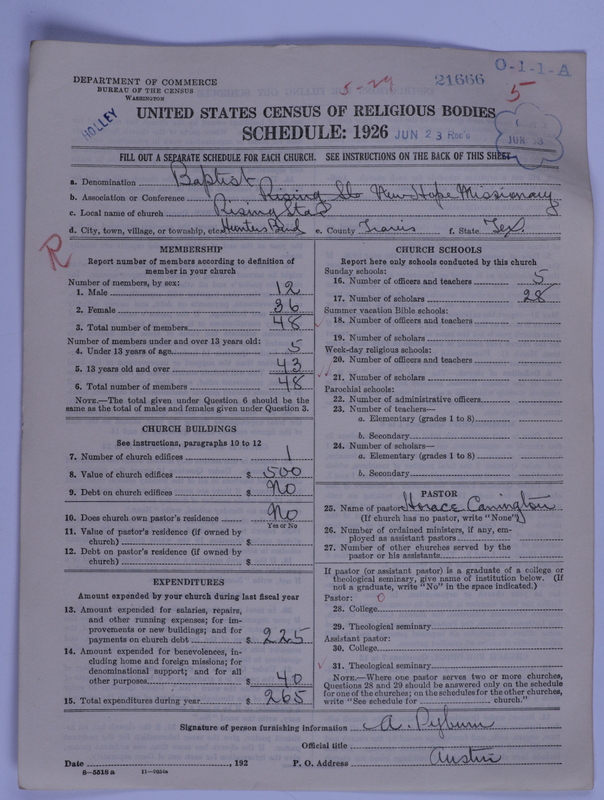 DEPARTMENT OF COMMERCE
BUREAU OF THE CENSUS
WASHINGTON
HOLLEY
5-29
21666
O-1-1-A
5
UNITED STATES CENSUS OF RELIGIOUS BODIES
SCHEDULE: 1926
JUN 23 Rec's
JUN
FILL OUT A SEPARATE SCHEDULE FOR EACH CHURCH. SEE INSTRUCTIONS ON THE BACK OF THIS SHEET
a. Denomination Baptist
b. Association or Conference Rising New Hope Missionary
c. Local name of church Rising Star
d. City, town, village, or township, etc. Hunters Bend e. County Travis f. State Tex.
R
MEMBERSHIP
Report number of members according to definition of
member in your church
Number of members, by sex:
1. Male 12
2. Female 36
3. Total number of members 48
Number of members under and over 13 years old:
4. Under 13 years of age 5
5. 13 years old and over 43
6. Total number of members 48
NOTE.—The total given under Question 6 should be the
same as the total of males and females given under Question 3.
CHURCH BUILDINGS
See instructions, paragraphs 10 to 12
7. Number of church edifices 1
8. Value of church edifices $ 500
9. Debt on church edifices $ No
10. Does church own pastor's residence No
Yes or No
11. Value of pastor's residence (if owned by
church) $
12. Debt on pastor's residence (if owned by
church) $
EXPENDITURES
Amount expended by your church during last fiscal year
13. Amount expended for salaries, repairs,
and other running expenses; for im-
provements or new buildings; and for
payments on church debt $ 225
14. Amount expended for benevolences, in-
cluding home and foreign missions; for
denominational support; and for all
other purposes $ 40
15. Total expenditures during year $ 265
CHURCH SCHOOLS
Report here only schools conducted by this church
Sunday schools:
16. Number of officers and teachers 5
17. Number of scholars 28
Summer vacation Bible schools:
18. Number of officers and teachers
19. Number of scholars
Week-day religious schools:
20. Number of officers and teachers
21. Number of scholars
Parochial schools:
22. Number of administrative officers
23. Number of teachers—
a. Elementary (grades 1 to 8)
b. Secondary
24. Number of scholars—
a. Elementary (grades 1 to 8)
b. Secondary
PASTOR
25. Name of pastor Horace Carrington
(If church has no pastor, write "None")
26. Number of ordained ministers, if any, em-
ployed as assistant pastors
27. Number of other churches served by the
pastor or his assistants
If pastor (or assistant pastor) is a graduate of a college or
theological seminary, give name of institution below. (If
not a graduate, write "No" in the space indicated.)
Pastor: 0
28. College
29. Theological seminary
Assistant pastor:
30. College
31. Theological seminary
NOTE.—Where one pastor serves two or more churches,
Questions 28 and 29 should be answered only on the schedule
for one of the churches; on the schedules for the other churches,
write "See schedule for church."
Signature of person furnishing information A. Pyburn
Official title
Date , 192 P. O. Address Austin
8-5516 a